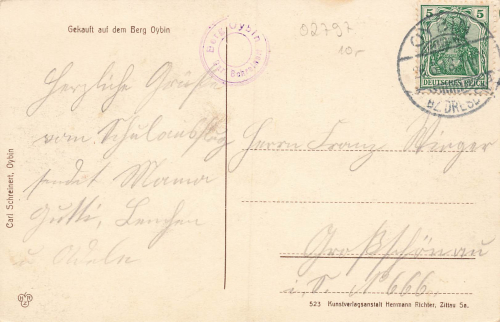 Gekauft auf dem Berg Oybin
Berg Oybin
02797
10,-
5 5
DEUTSCHES REICH
BZ. DRESD
Herzliche Grüße
vom Schulausflug
sendet Mama
Gutti, Lenchen
u. Adele
Herrn Franz Wirger
Großschönau
i. S. No 666.
Carl Schreinert, Oybin
523 Kunstverlagsanstalt Hermann Richter, Zittau Sa.